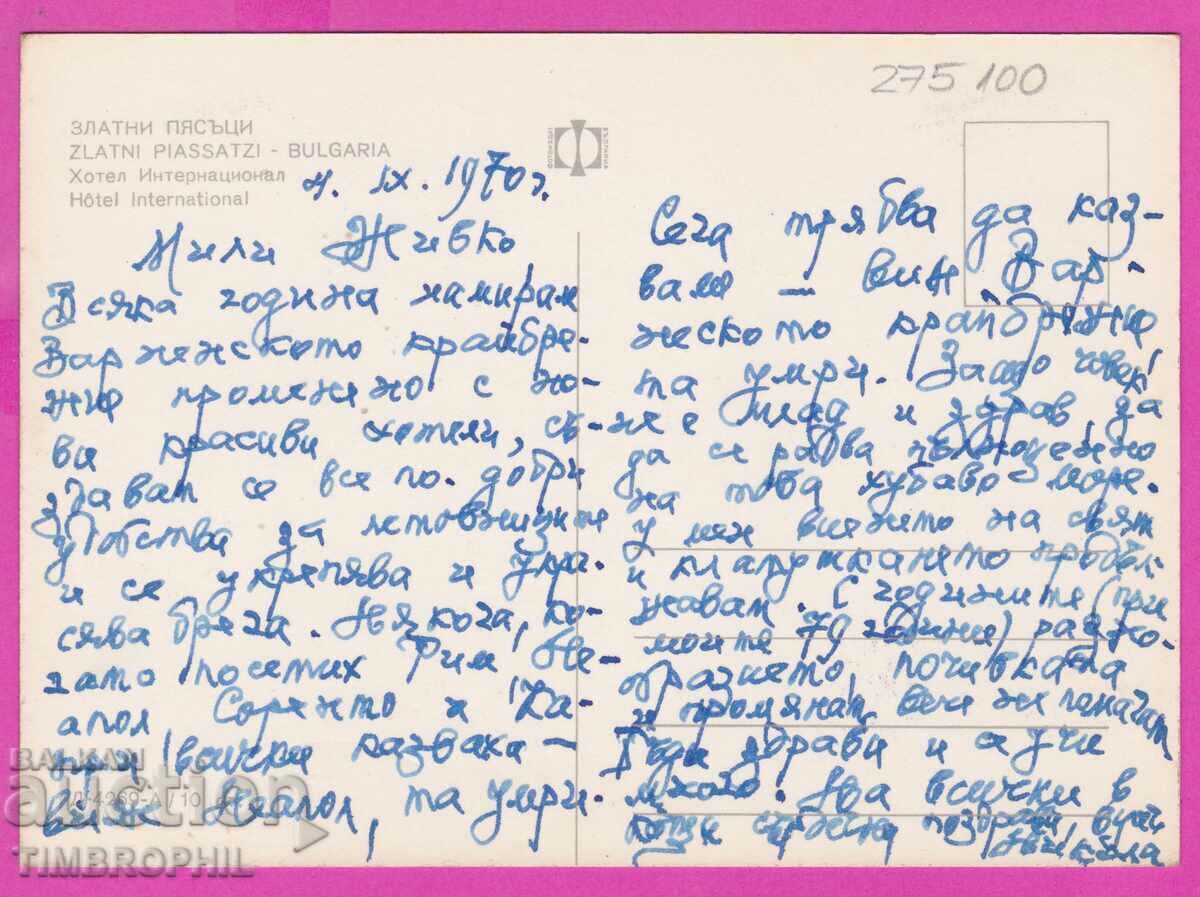 275 100
ЗЛАТНИ ПЯСЪЦИ
ZLATNI PIASSATZI - BULGARIA
Хотел Интернационал
Hôtel International
4. IX. 1970 г.
Мили Живко
Всяка година намирам
Варненското крайбре-
жие променено с но-
ви красиви хотели, съ-
здават се все по. добри
удобства за летовниците
и се укрепява и укра-
сява брега. Някога, ко-
гато посетих Рим Не-
апол Соренто и Ка-
при всички казваха —
виж Неапол, та умри.
Сега трябва да каз-
вам — виж Вар-
неското крайбрежие
та умри. Защо човек
не е млад и здрав, за
да се радва пълноценно
на това хубаво море.
У мен виенето на свят
и клатушкането продъл-
жават. С годините (при
моите 79 години) разхо-
почивката
и промяната вече не помагат
Бъди здрави и а учи
много. На всички в
къщи поздрави вуйчо
Никола
ФОТОИЗДАТ
БЪЛГАРИЯ
4269-А / 10
BALKAN
auction
TIMBROPHIL